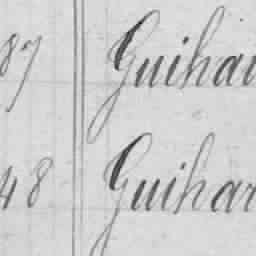 87 Guihai
48 Guihar